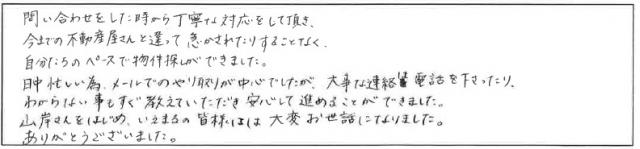 問い合わせをした時から丁寧な対応をして頂き、
今までの不動産屋さんと違って急かされたりすることなく、
自分たちのペースで物件探しができました。
日中忙しい為、メールでのやり取りが中心でしたが、大事な連絡は電話を下さったり、
わからない事もすぐ教えていただき安心して進めることができました。
山岸さんをはじめ、いえまるの皆様には大変お世話になりました。
ありがとうございました。